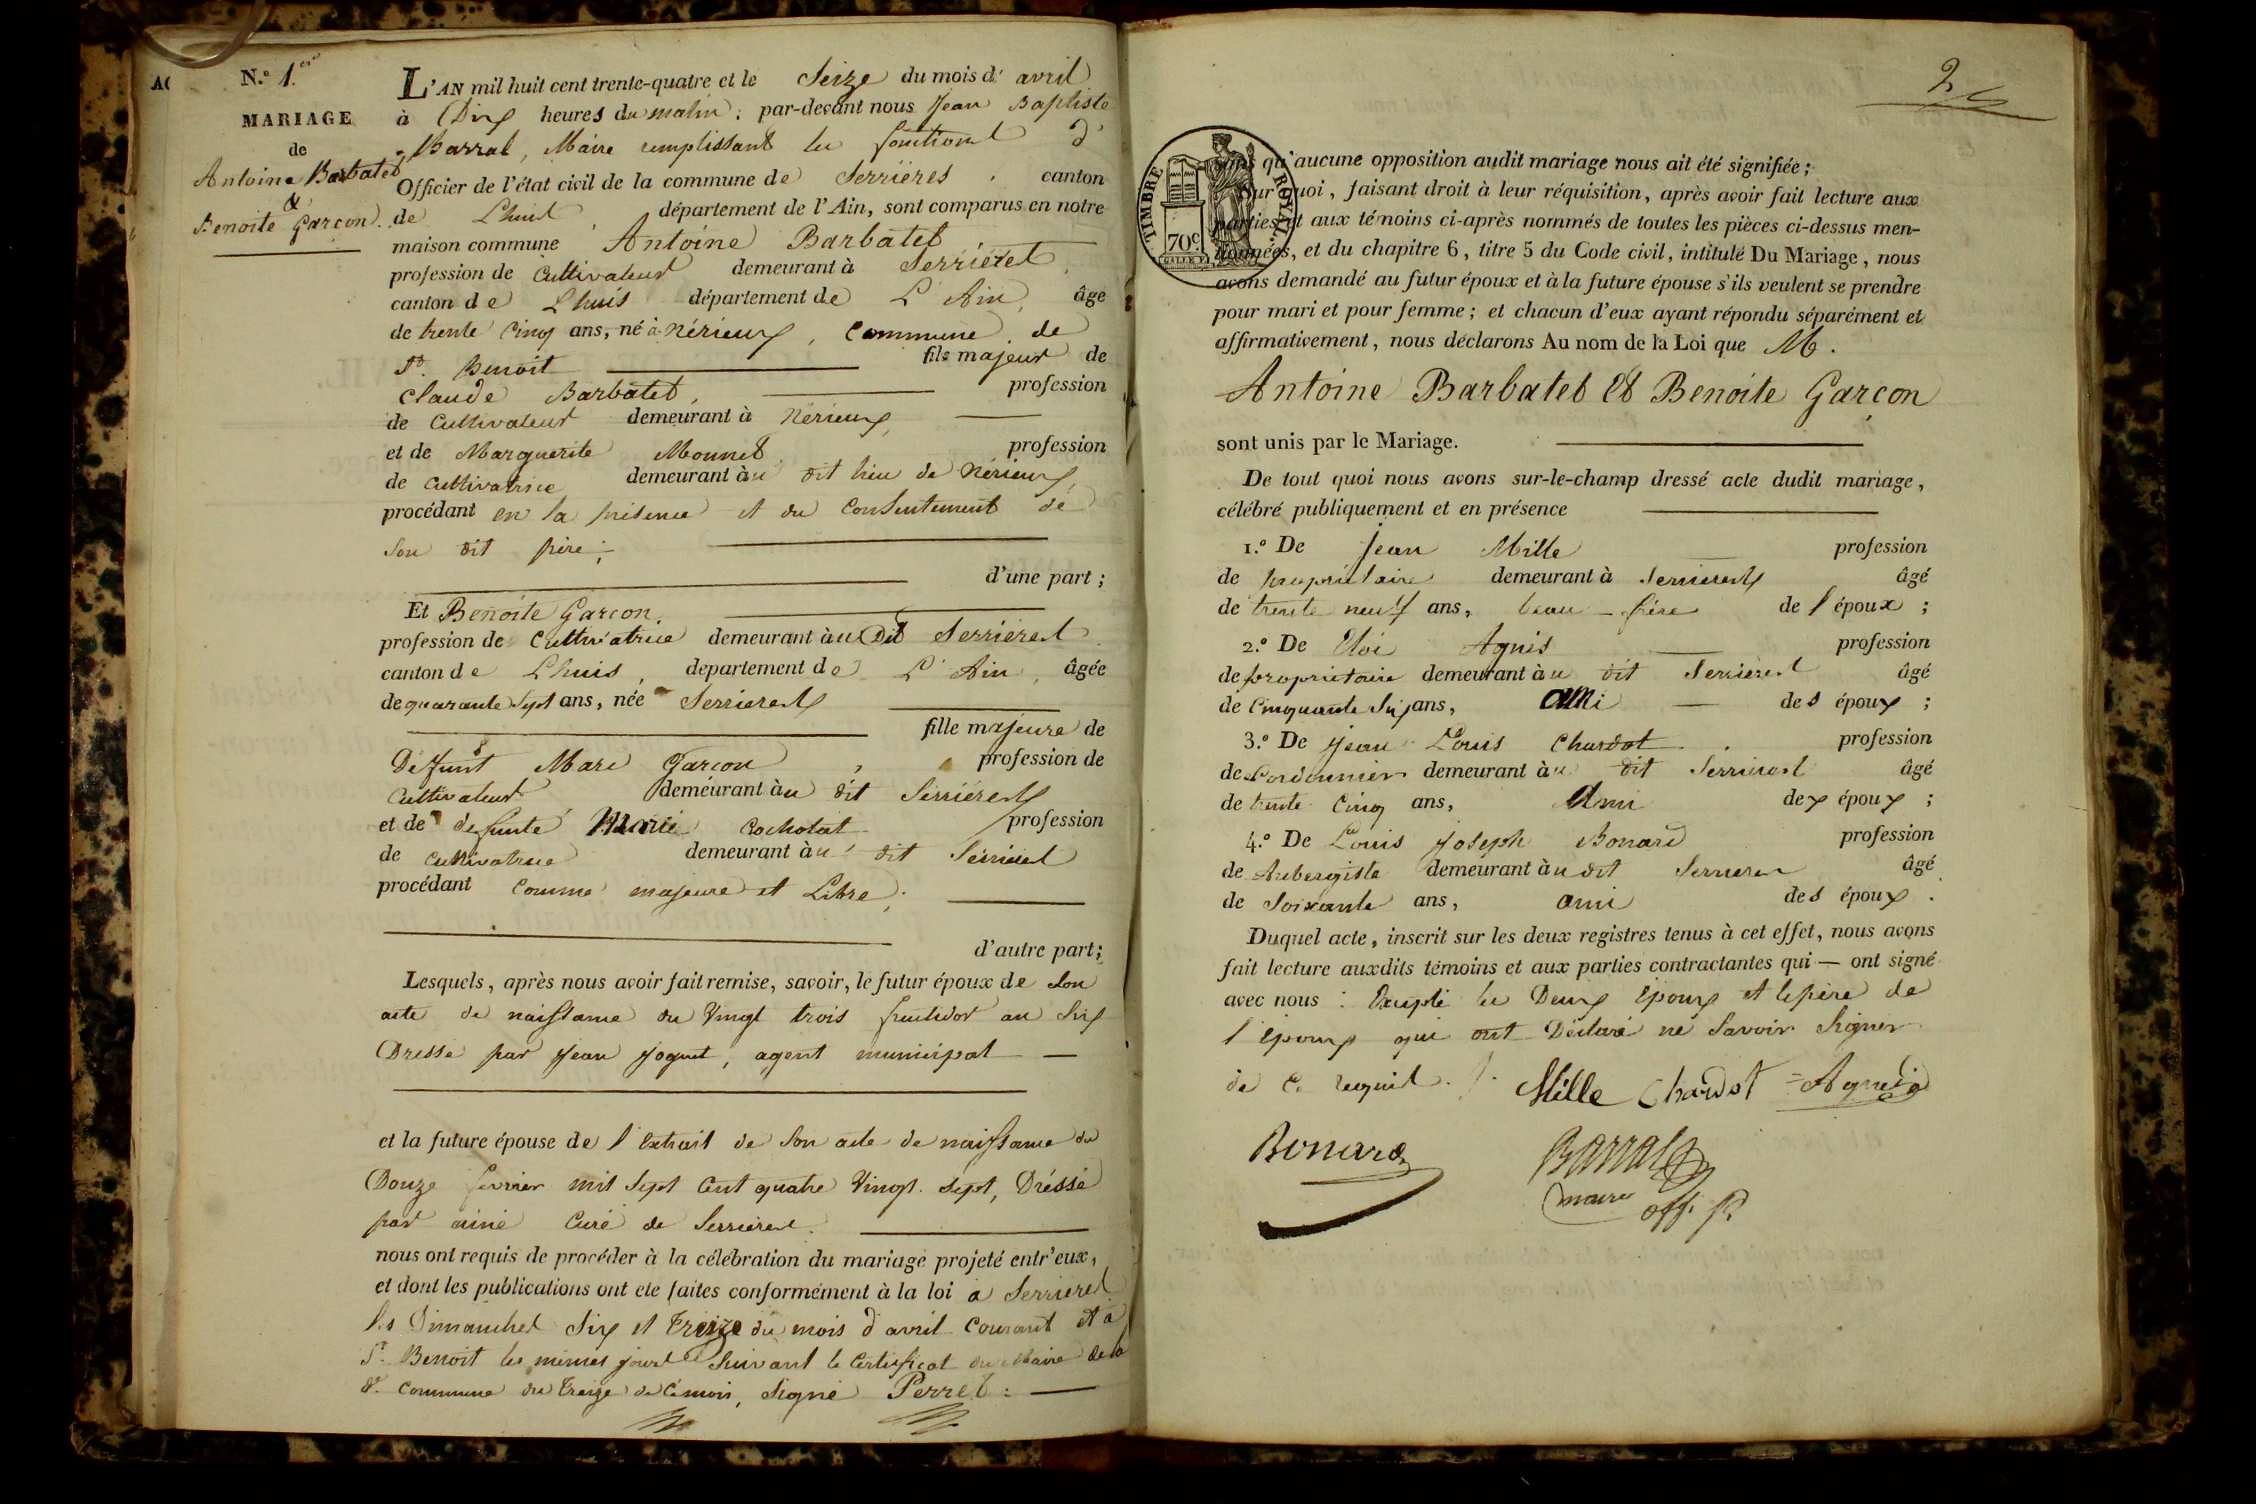 N.º 1.er
MARIAGE
de
Antoine Barbatet
&
Benoite Garcon.
L'AN mil huit cent trente-quatre et le Seize du mois d' avril
à Dix heures du matin; par-devant nous Jean Baptiste
Barral, Maire remplissant les fonctions d'
Officier de l'état civil de la commune de Serrières, canton
de Lhuis, département de l'Ain, sont comparus en notre
maison commune Antoine Barbatet
profession de Cultivateur demeurant à Serrières,
canton de Lhuis département de L'Ain, âge
de trente Cinq ans, né à Nérieux, Commune de
St. Benoit fils majeur de
Claude Barbatet, profession
de Cultivateur demeurant à Nérieux,
et de Marguerite Monnet profession
de Cultivatrice demeurant àu dit lieu de Nérieux,
procédant en la présence et du Consentement de
Son dit père;
d'une part;
Et Benoite Garcon,
profession de Cultivatrice demeurant àu Dit Serrières
canton de Lhuis, departement de L'Ain, âgée
de quarante Sept ans, née a Serrieres
fille majeure de
Défunt Marc Garcon, profession de
Cultivateur demeurant àu dit Serrières
et de défunte Marie Cochotat profession
de Cultivatrice demeurant àu dit Serrieres
procédant Comme majeure et Libre;
d'autre part;
Lesquels, après nous avoir fait remise, savoir, le futur époux de Son
acte de naissance du Vingt trois fructidor an Six
Dressé par Jean Joguet, agent municipal
et la future épouse de l'Extrait de Son acte de naissance du
Douze fevrier mil Sept Cent quatre Vingt. Sept, Dréssé
par Curé de Serrieres.
nous ont requis de procéder à la célébration du mariage projeté entr'eux,
et dont les publications ont eté faites conformément à la loi a Serrieres
les Dimanches Six et Treize du mois d'avril Courant et a
St. Benoit les mêmes jours Suivant le Certificat du Maire de la
dte. Commune du Treize de Ce mois, Signé Perret:
2
TIMBRE ROYAL
70c
sans qu'aucune opposition audit mariage nous ait été signifiée;
Sur quoi, faisant droit à leur réquisition, après avoir fait lecture aux
parties et aux témoins ci-après nommés de toutes les pièces ci-dessus men-
tionnées, et du chapitre 6, titre 5 du Code civil, intitulé Du Mariage, nous
avons demandé au futur époux et à la future épouse s'ils veulent se prendre
pour mari et pour femme; et chacun d'eux ayant répondu séparément et
affirmativement, nous déclarons Au nom de la Loi que M.
Antoine Barbatet Et Benoite Garçon
sont unis par le Mariage.
De tout quoi nous avons sur-le-champ dressé acte dudit mariage,
célébré publiquement et en présence
1.º De Jean Mille profession
de propriétaire demeurant à Serrieres âgé
de trente neuf ans, beau-frère de l'époux;
2.º De Eloi Agnis profession
de proprietaire demeurant àu dit Serrières âgé
de Cinquante Six ans, ami des époux;
3.º De Jean Louis Chardot profession
de Cordonnier demeurant àu dit Serrieres âgé
de trente Cinq ans, Ami dex époux;
4.º De Louis Joseph Bonard profession
de Aubergiste demeurant àu dit Serrieres âgé
de Soixante ans, ami des époux.
Duquel acte, inscrit sur les deux registres tenus à cet effet, nous avons
fait lecture auxdits témoins et aux parties contractantes qui — ont signé
avec nous: Excepté les Deux Epoux et le père de
l'époux qui ont Déclaré ne Savoir Signer
de Ce requis.
Mille Chardot Agnis
Bonard
Barral
maire off. p.